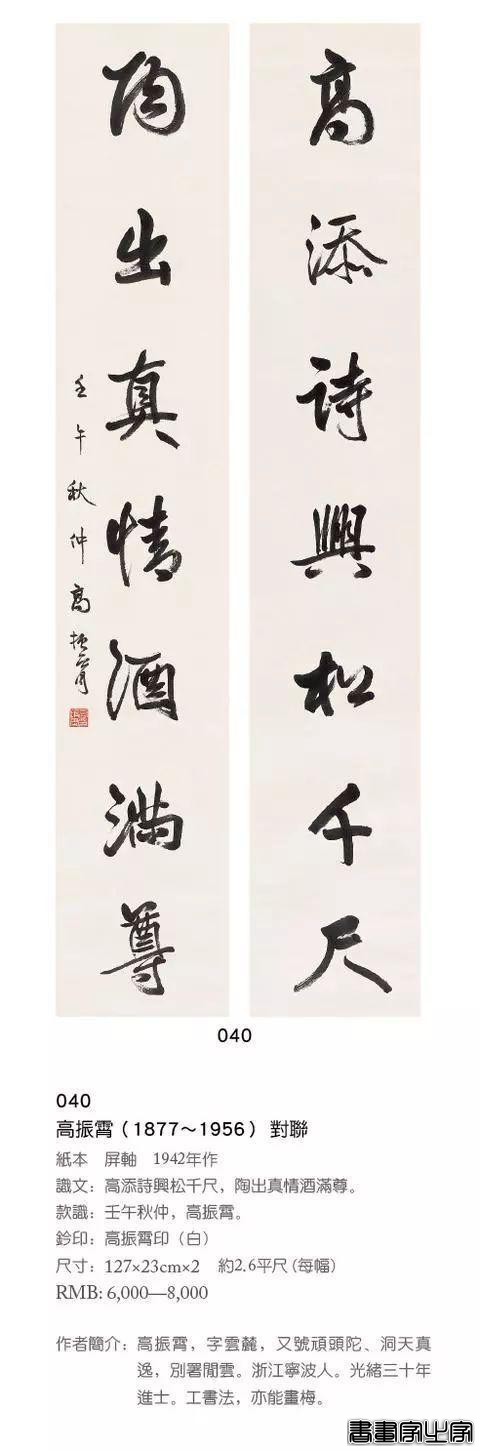 高添詩興松千尺
陶出真情酒滿尊
壬午秋仲高振霄
040
040
高振霄（1877～1956） 對聯
紙本 屏軸 1942年作
識文：高添詩興松千尺，陶出真情酒滿尊。
款識：壬午秋仲，高振霄。
鈐印：高振霄印（白）
尺寸：127×23cm×2 約2.6平尺（每幅）
RMB: 6,000—8,000
作者簡介：高振霄，字雲麓，又號頑頭陀、洞天真
逸，別署閒雲。浙江寧波人。光緒三十年
進士。工書法，亦能畫梅。
書畫家之家